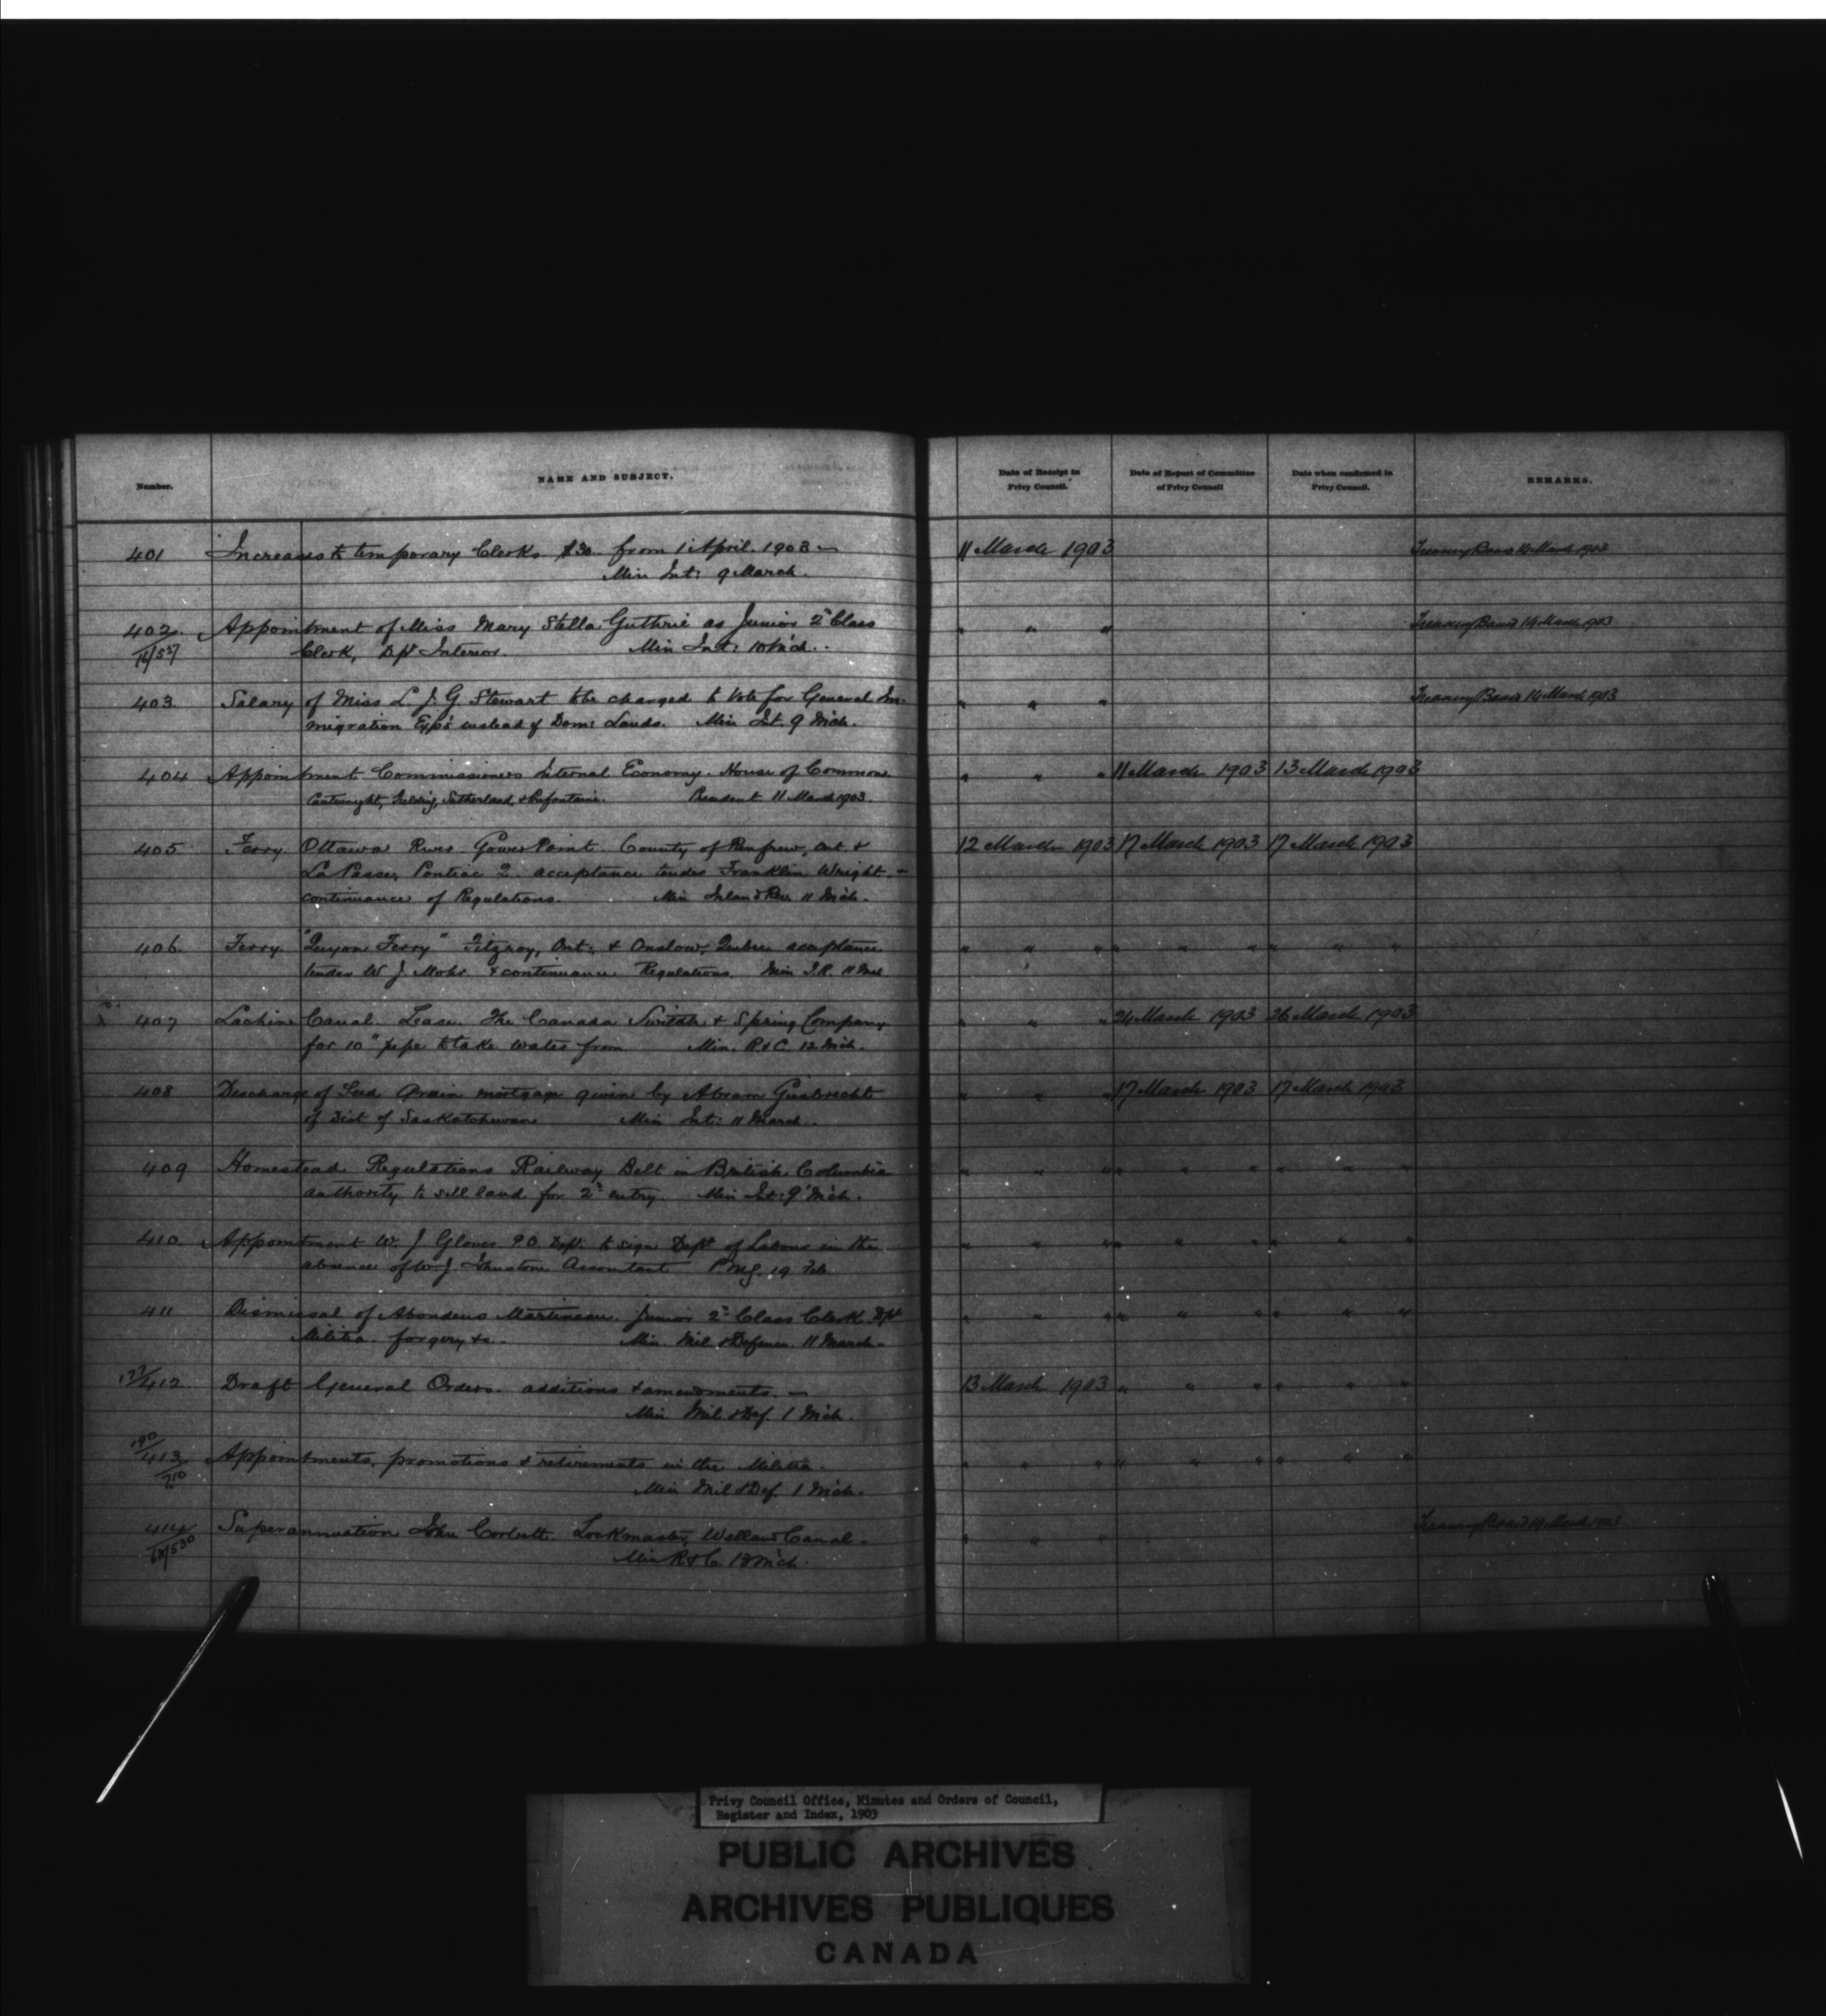 Number.
NAME AND SUBJECT.
Date of Receipt in Privy Council.
Date of Report of Committee of Privy Council
Date when confirmed in Privy Council.
REMARKS.
401 Increases to temporary Clerks $30 from 1 April. 1903 — 11 March 1903 Treasury Board 14 March 1903
Min Int: 9 March.
402 Appointment of Miss Mary Stella Guthrie as Junior 2d Class " " " Treasury Board 14 March 1903
Clerk, Dpt Interior. Min Int: 10 Mch.
403 Salary of Miss L. J. G Stewart to be charged to Vote for General Im- " " " Treasury Board 14 March 1903
migration Exps instead of Dom: Lands. Min Int. 9 Mch.
404 Appointment Commissioners Internal Economy. House of Commons " " " 11 March 1903 13 March 1903
Cartwright, Fielding, Sutherland, & Prefontaine. President 11 March 1903.
405 Ferry. Ottawa River Gower Point. County of Renfrew, Ont. & 12 March 1903 17 March 1903 17 March 1903
La Passe, Pontiac Q. acceptance tender Franklin Wright —
continuance of Regulations. Min Inland Rev 11 Mch.
406. Ferry. "Quyon Ferry" Fitzroy, Ont: & Onslow, Quebec acceptance " " " " " " " " "
tender W J. Mohr & continuance Regulations. Min I.R. 11 Mch
407 Lachine Canal. Lease. The Canada Switch & Spring Company " " " 24 March 1903 26 March 1903
for 10" pipe to take water from Min. R & C. 12 Mch.
408 Discharge of Seed Grain mortgage given by Abram Giesbrecht " " " 17 March 1903 17 March 1903
of Dist of Saskatchewan Min Int: 11 March.
409 Homestead Regulations Railway Belt in British Columbia " " " " " " " " "
authority to sell land for 2d entry. Min Int: 9 Mch.
410. Appointment W. J Glover P.O Dept. to sign Dept of Labour in the " " " " " " " " "
absence of W. J. Johnstone Accountant PMG. 19 Feb
411 Dismissal of Abondeus Martineau. Junior 2d Class Clerk Dpt " " " " " " " " "
Militia. forgery &c. Min Mil & Defence. 11 March.
412. Draft General Orders. additions & amendments. — 13 March 1903 " " " " " "
Min Mil & Def. 1 Mch.
190/413/710 Appointments, promotions & retirements in the Militia. " " " " " " " " "
Min Mil & Def. 1 Mch.
414 Superannuation John Corbett. Lockmaster, Welland Canal. " " " Treasury Board 14 March 1903
Min R & C. 13 Mch.
Privy Council Office, Minutes and Orders of Council,
Register and Index, 1903
PUBLIC ARCHIVES
ARCHIVES PUBLIQUES
CANADA